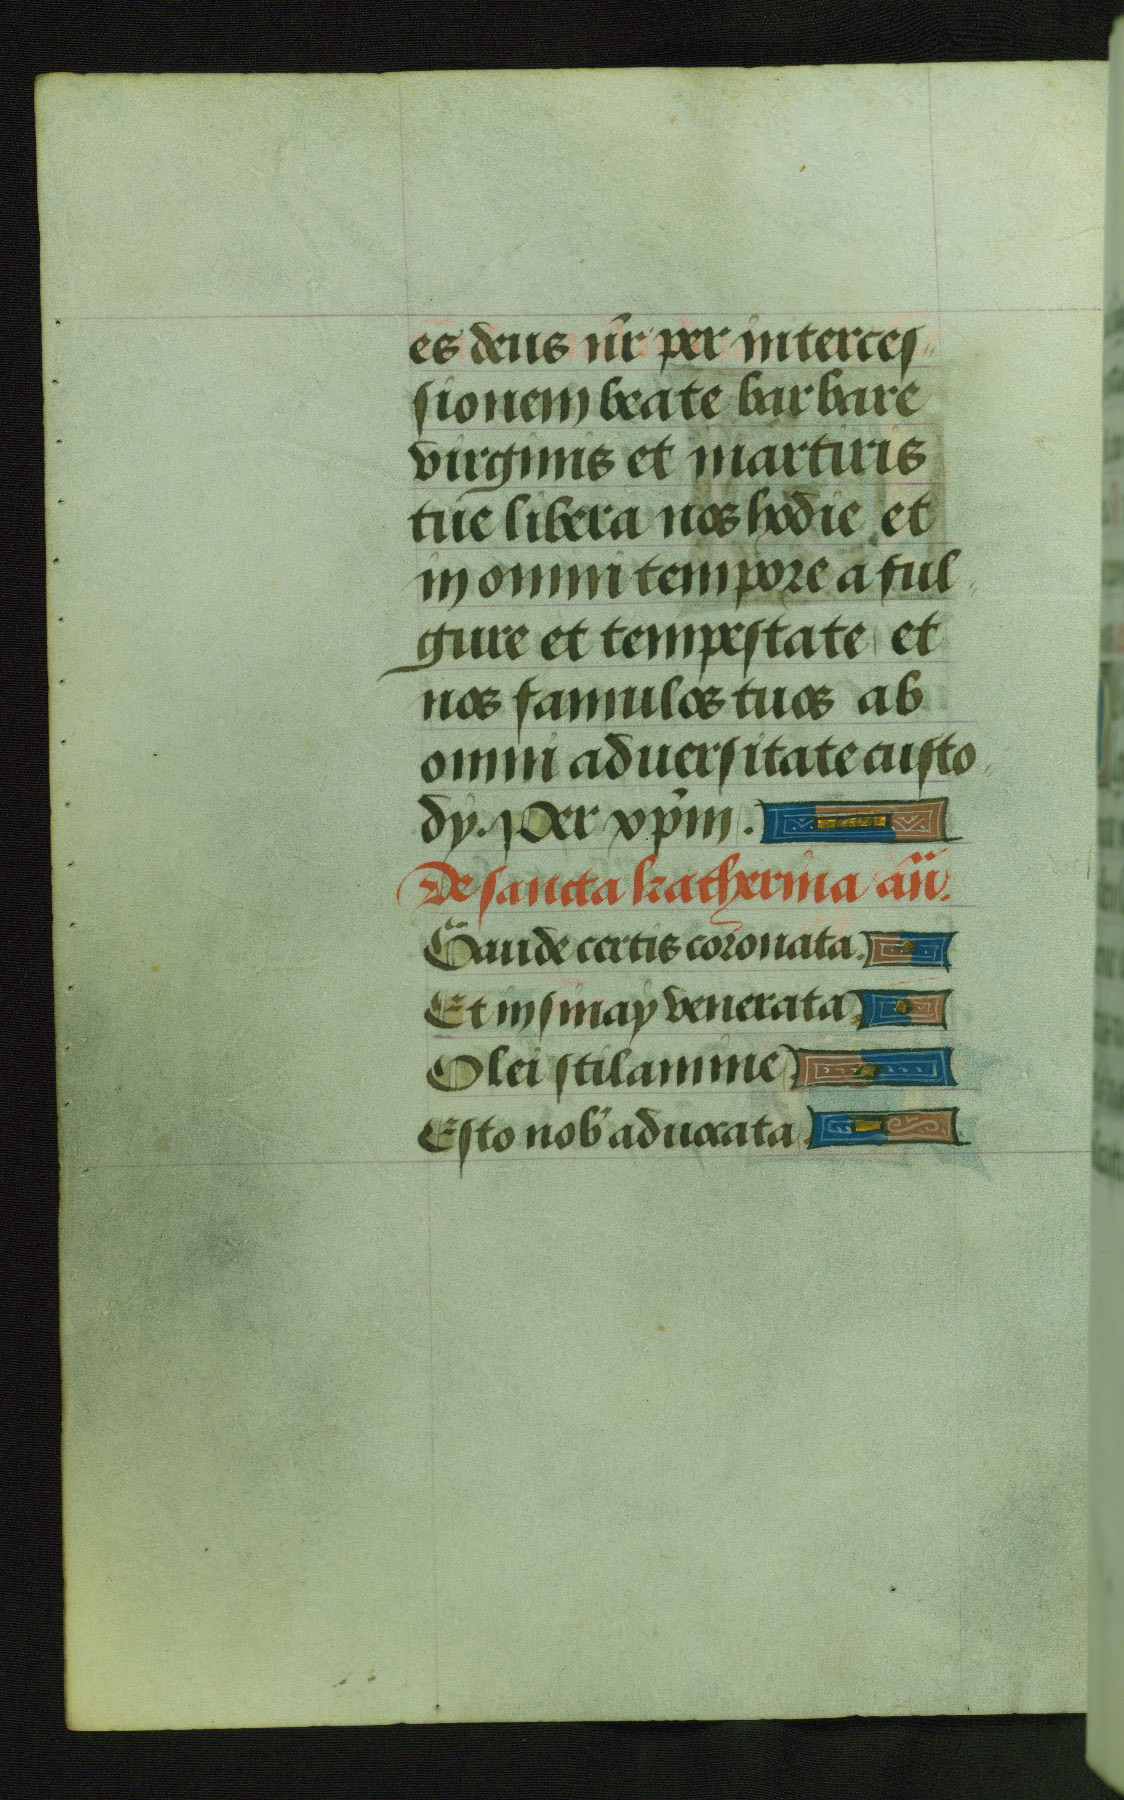 es deus nr̄ per interces⸗
sionem beate barbare
virginis et martiris
tue libera nos hodie et
in omni tempore a ful⸗
gure et tempestate et
nos famulos tuos ab
omni aduersitate custo⸗
dy. Per xp̄m.
De sancta katherina an̄.
Gaude certis coronata.
Et in sinay venerata.
Olei stilamine.
Esto nob̄ aduocata.